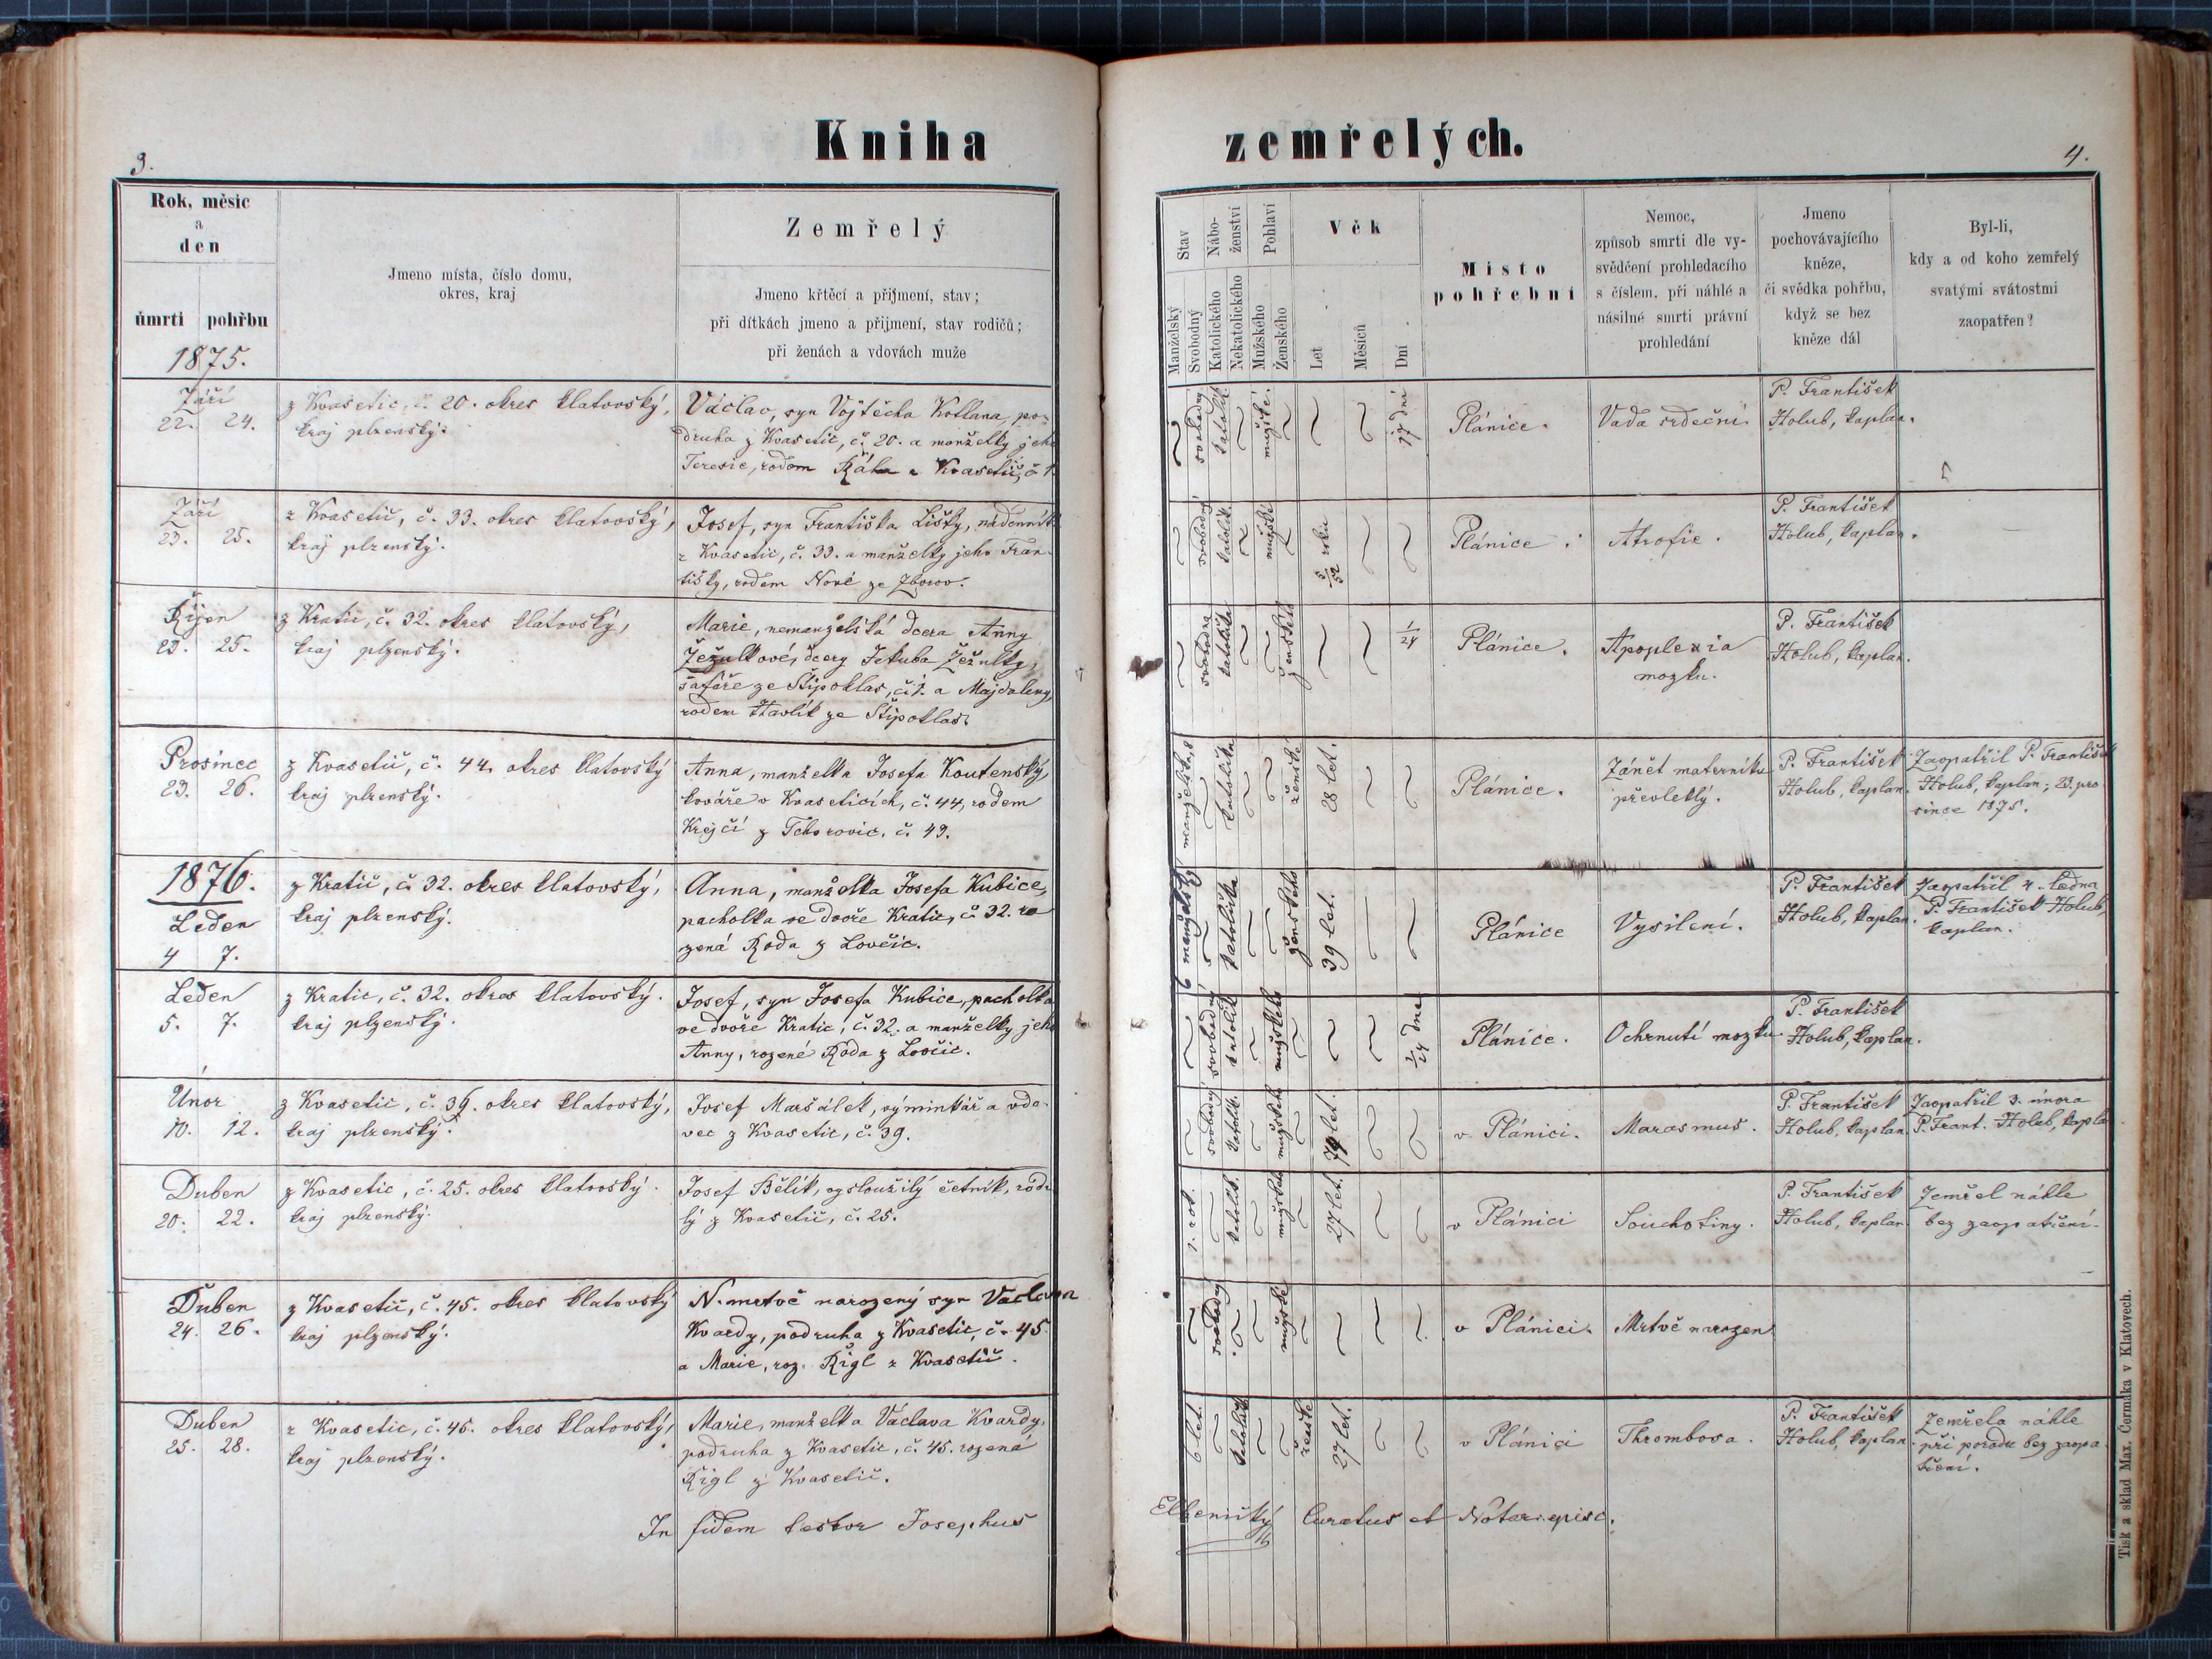 Kniha
zemřelých.
3.
4.
Rok, měsíc
a
den
úmrti pohřbu
Jmeno místa, číslo domu,
okres, kraj
Zemřelý
Jmeno křtěcí a přijmení, stav;
při dítkách jmeno a přijmení, stav rodičů;
při ženách a vdovách muže
Stav
Manželský
Svobodný
Nábo-
ženství
Katolického
Nekatolického
Pohlaví
Mužského
Ženského
Věk
Let
Měsíců
Dní
Místo
pohřební
Nemoc,
způsob smrti dle vy-
svědčení prohledacího
s číslem, při náhlé a
násilné smrti právní
prohledání
Jmeno
pochovávajícího
kněze,
či svědka pohřbu,
když se bez
kněze dál
Byl-li,
kdy a od koho zemřelý
svatými svátostmi
zaopatřen?
1875.
Září
22. 24.
z Kvasetic, č. 20. okres klatovský,
kraj plzenský.
Václav, syn Vojtěcha Kollana, po-
druha z Kvasetic, č. 20. a manželky jeho
Teresie, rodom
svobodný
katolík
mužské.
17 dní
Plánice.
Vada srdeční.
P. František
Holub, kaplan.
Září
23. 25.
z Kvasetic, č. 33. okres klatovský,
kraj plzenský.
Josef, syn Františka Lišky, nádenník
z Kvasetic, č. 33. a manželky jeho Fran-
tišky, rodem Nové ze Zborov.
svobodný
katolík.
mužské
5/52 roku
Plánice.
Atrofie.
P. František
Holub, kaplan.
Říjen
23. 25.
z Kratic, č. 32. okres klatovský,
kraj plzenský.
Marie, nemanželská dcera Anny
Žežulkové, dcery Jakuba Žežulky,
šafáře ze Štipoklas, č. 1. a Majdaleny,
rodem Havlík ze Štipoklas.
svobodna
katolička
ženského
1/24
Plánice.
Apoplexia
mozku.
P. František
Holub, kaplan.
Prosinec
23. 26.
z Kvasetic, č. 44. okres klatovský
kraj plzenský.
Anna, manželka Josefa Koutenský,
kováře v Kvaseticích, č. 44, rodem
Krejčí z Tchorovic. č. 49.
katolička
ženské
28 let.
Plánice.
Zánět materníku
převleklý.
P. František
Holub, kaplan.
Zaopatřil P. František
Holub, kaplan; 23. pro-
since 1875.
1876.
Leden
4 7.
z Kratic, č. 32. okres klatovský,
kraj plzenský.
Anna, manželka Josefa Kubice,
pacholka ve dvoře Kratic, č. 32. ro
zená Roda z Lovčic.
6 manželský
katolička
ženského
39 let.
Plánice
Vysilení.
P. František
Holub, kaplan.
Zaopatřil 4. ledna
P. František Holub,
kaplan.
Leden
5. 7.
z Kratic, č. 32. okres klatovský.
kraj plzenský.
Josef, syn Josefa Kubice, pacholka
ve dvoře Kratic, č. 32. a manželky jeho
Anny, rozené Róda z Lovčic.
svobodný
katolík
mužského
dne
Plánice.
Ochrnutí mozku.
P. František
Holub, kaplan.
Únor
10. 12.
z Kvasetic, č. 39. okres klatovský,
kraj plzenský.
Josef Maršálek, výminkář a vdo-
vec z Kvasetic, č. 39.
svobodný
katolík.
mužského
let.
v Plánici.
Marasmus.
P. František
Holub, kaplan.
Zaopatřil 3. února
P. Frant. Holub, kapla
Duben
20. 22.
z Kvasetic, č. 25. okres klatovský.
kraj plzenský.
Josef Bělík, vysloužilý četník, rodi-
lý z Kvasetic, č. 25.
katolík.
mužského
27 let.
v Plánici
Souchotiny.
P. František
Holub, kaplan
Zemřel náhle
bez zaopatření.
Duben
24. 26.
z Kvasetic, č. 45. okres klatovský
kraj plzenský.
N. mrtvě narozený syn Václava
Kvardy, podruha z Kvasetic, č. 45
a Marie, roz. Rigl z Kvasetic.
svobodný
mužské
v Plánici.
Mrtvě narozen
Duben
25. 28.
z Kvasetic, č. 45. okres klatovský,
kraj plzenský.
Marie, manželka Václava Kvardy,
podruha z Kvasetic, č. 45. rozená
Rigl z Kvasetic.
6 let.
ženské
27 let.
v Plánici
Thrombosa.
P. František
Holub, kaplan
Zemřela náhle
při porodu bez zaopa
tření.
In fidem testor Josephus
Elhenický Curatus et Notar. episc.
Tisk a sklad Max. Čermáka v Klatovech.